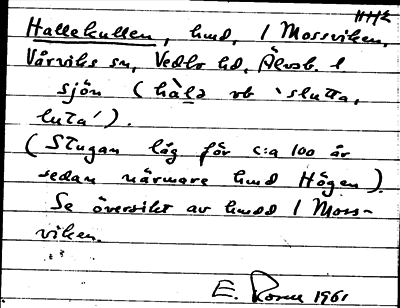 Hallekullen, hmd, i Mossviken,
Vårviks sn, Vedbo hd, Älvsb. l
sjön (hàlə vb 'slutta,
luta').
(Stugan låg för c:a 100 år
sedan närmare hmd Högen).
Se översikt av hmdd i Moss-
viken.
E. 1961